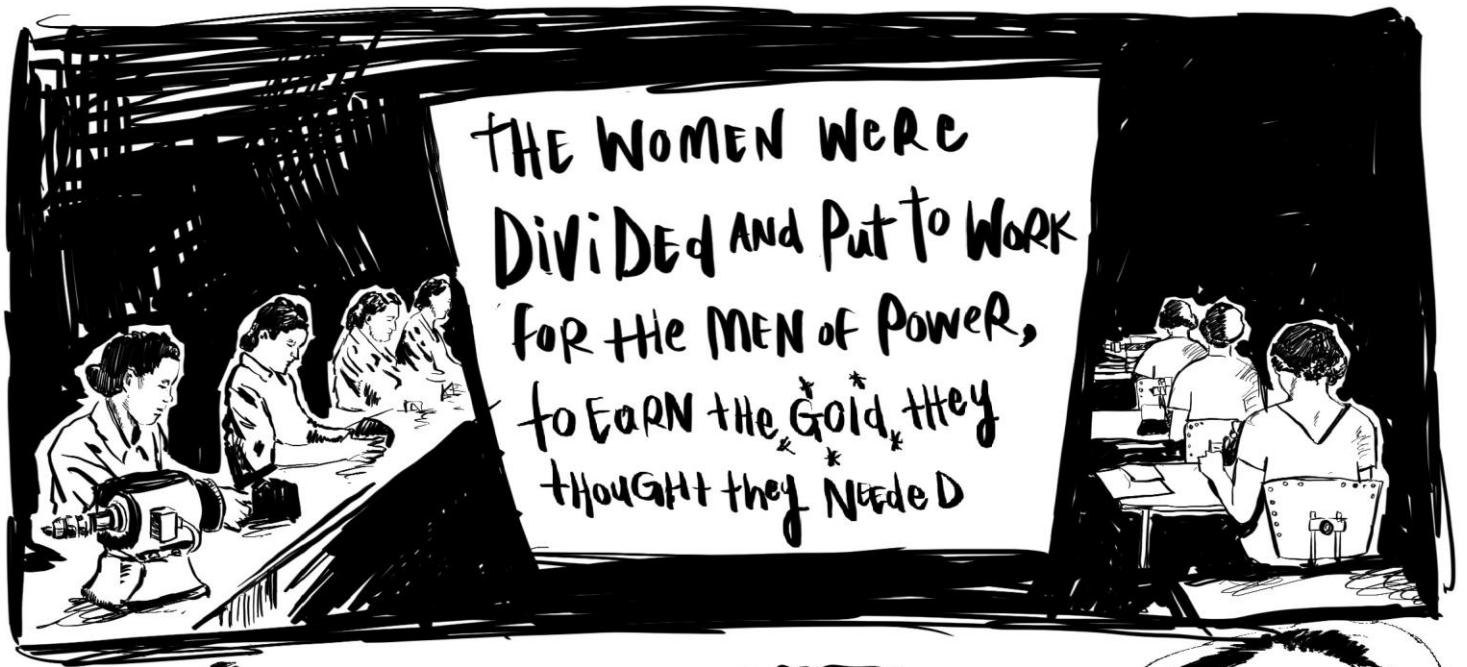 THE WOMEN WERE
DIVIDED AND PUT TO WORK
FOR THE MEN OF POWER,
TO EARN THE GOLD THEY
THOUGHT THEY NEEDED